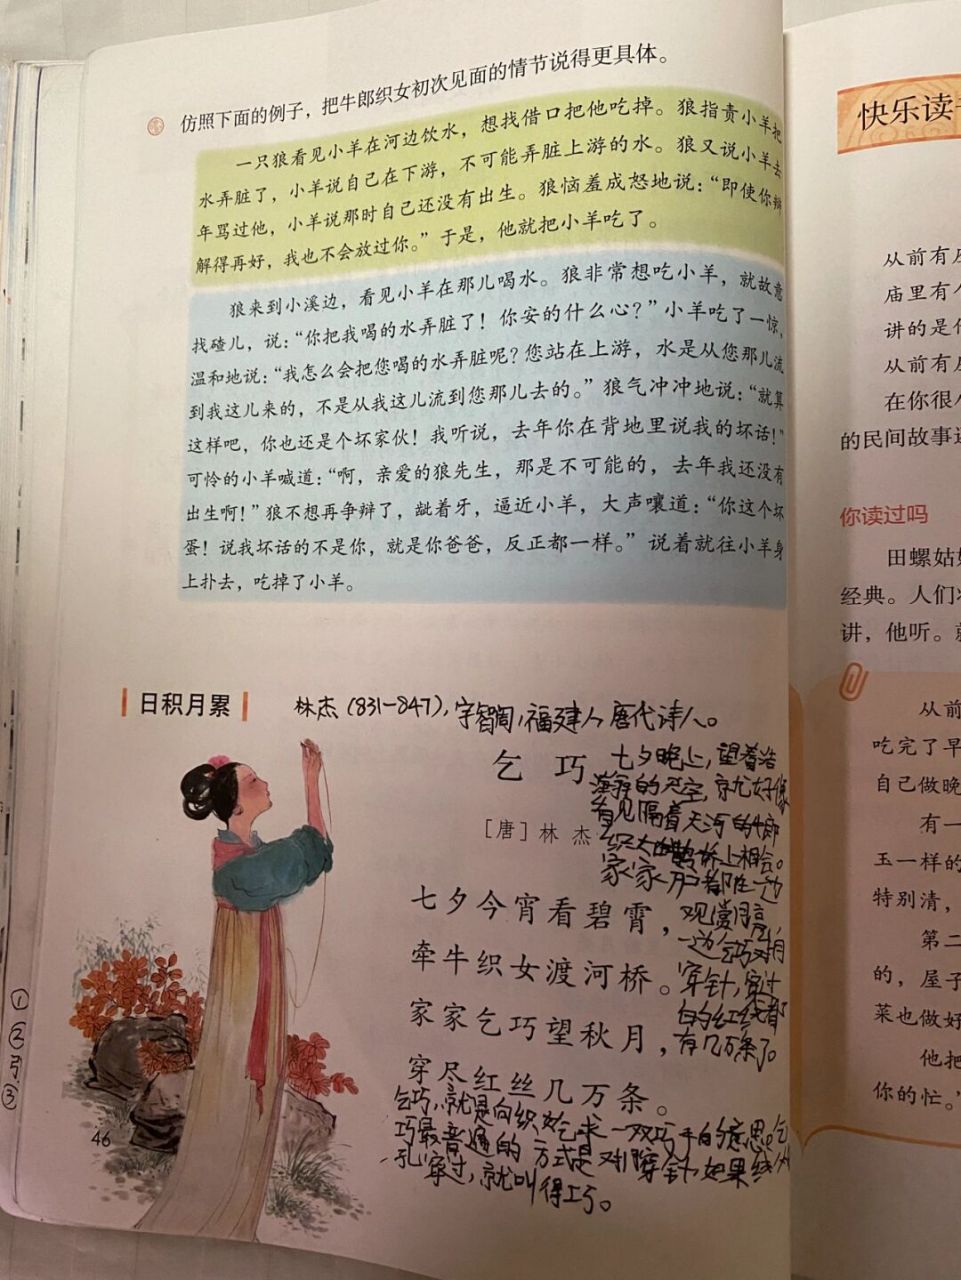 仿照下面的例子，把牛郎织女初次见面的情节说得更具体。
一只狼看见小羊在河边饮水，想找借口把他吃掉。狼指责小羊把
水弄脏了，小羊说自己在下游，不可能弄脏上游的水。狼又说小羊去
年骂过他，小羊说那时自己还没有出生。狼恼羞成怒地说：“即使你辩
解得再好，我也不会放过你。”于是，他就把小羊吃了。
狼来到小溪边，看见小羊在那儿喝水。狼非常想吃小羊，就故意
找碴儿，说：“你把我喝的水弄脏了！你安的什么心？”小羊吃了一惊，
温和地说：“我怎么会把您喝的水弄脏呢？您站在上游，水是从您那儿流
到我这儿来的，不是从我这儿流到您那儿去的。”狼气冲冲地说：“就算
这样吧，你也还是个坏家伙！我听说，去年你在背地里说我的坏话！”
可怜的小羊喊道：“啊，亲爱的狼先生，那是不可能的，去年我还没有
出生啊！”狼不想再争辩了，龇着牙，逼近小羊，大声嚷道：“你这个坏
蛋！说我坏话的不是你，就是你爸爸，反正都一样。”说着就往小羊身
上扑去，吃掉了小羊。
日积月累
林杰（831-847），字智周，福建人 唐代诗人。
乞巧
［唐］林杰
七夕今宵看碧霄，
牵牛织女渡河桥。
家家乞巧望秋月，
穿尽红丝几万条。
七夕晚上，望着浩
瀚的天空，就好像
看见隔着天河的牛郎
织女 鹊桥上相会。
家家户户都在一边
观赏月亮，
一边乞巧对月
穿针，穿过
的红线都
有几万条了。
乞巧，就是向织女乞求一双巧手的意思。乞
巧最普遍的方式是对月穿针，如果线从
孔穿过，就叫得巧。
46
①
②
引
③
快乐读
从前有
庙里有
讲的是
从前有
在你很
的民间故事
你读过吗
田螺姑
经典。人们
讲，他听。
从前
吃完了早
自己做晚
有一
玉一样的
特别清，
第二
的，屋子
菜也做好
他把
你的忙。